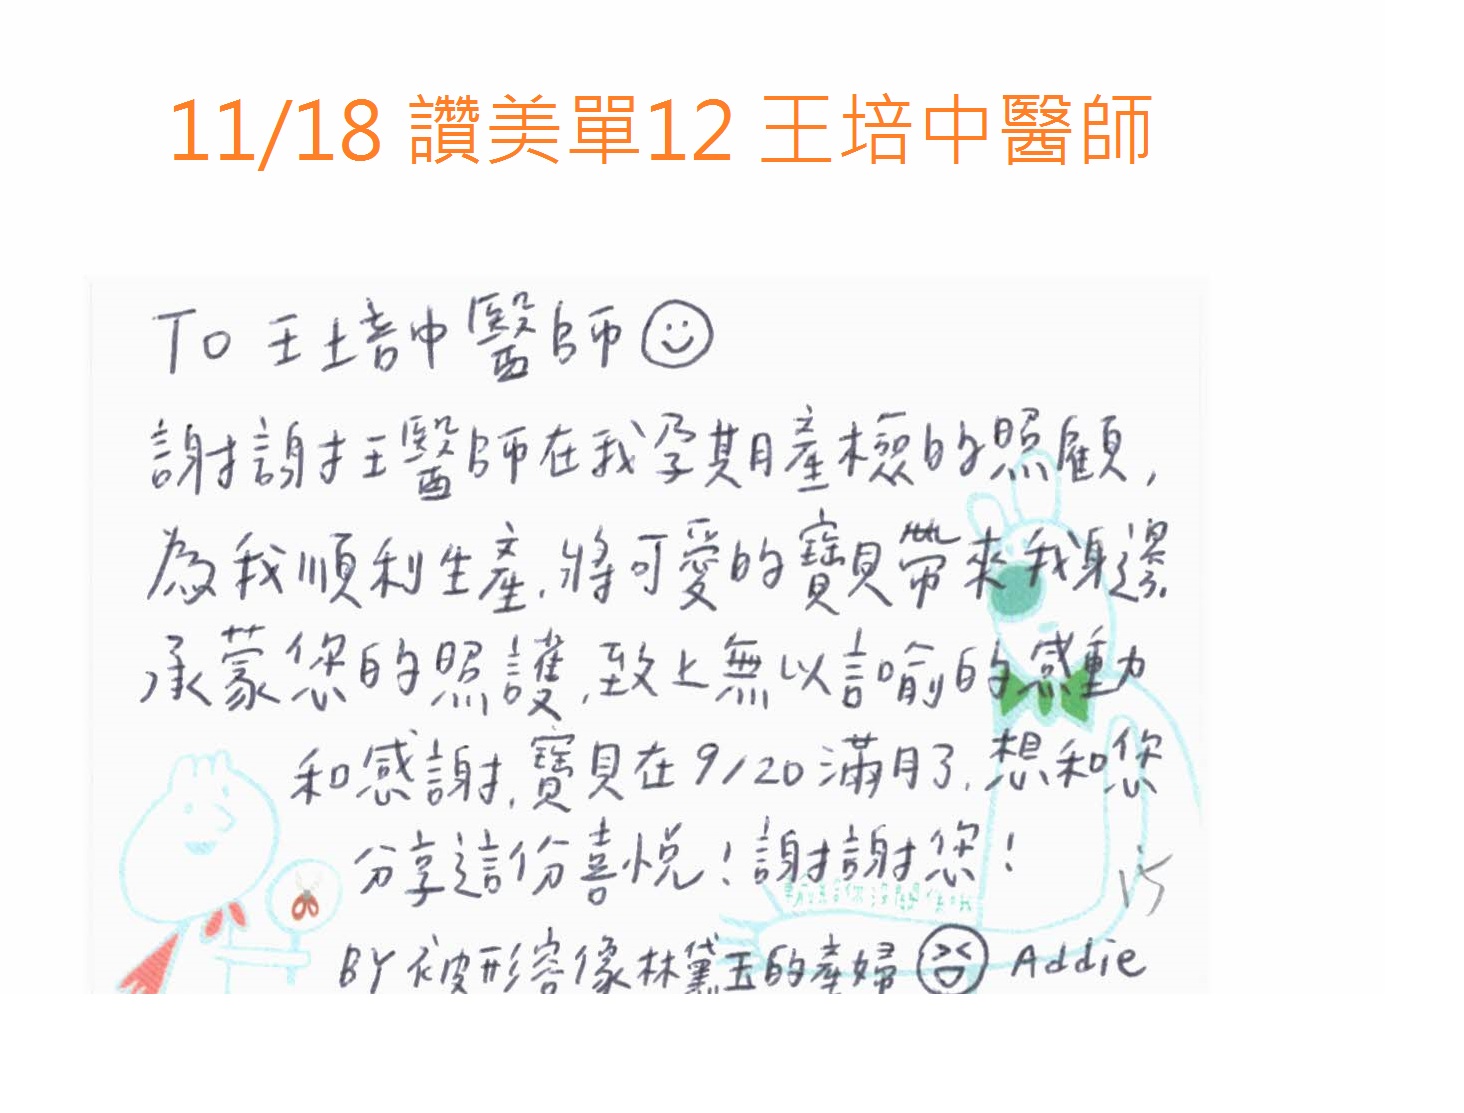 11/18 讚美單12 王培中醫師
To 王培中醫師
謝謝王醫師在我孕期產檢的照顧,
為我順利生產,將可愛的寶貝帶來我身邊
承蒙您的照護,致上無以言喻的感動
和感謝,寶貝在9/20滿月了,想和您
分享這份喜悅!謝謝您!
BY 被形容像林黛玉的產婦 Addie